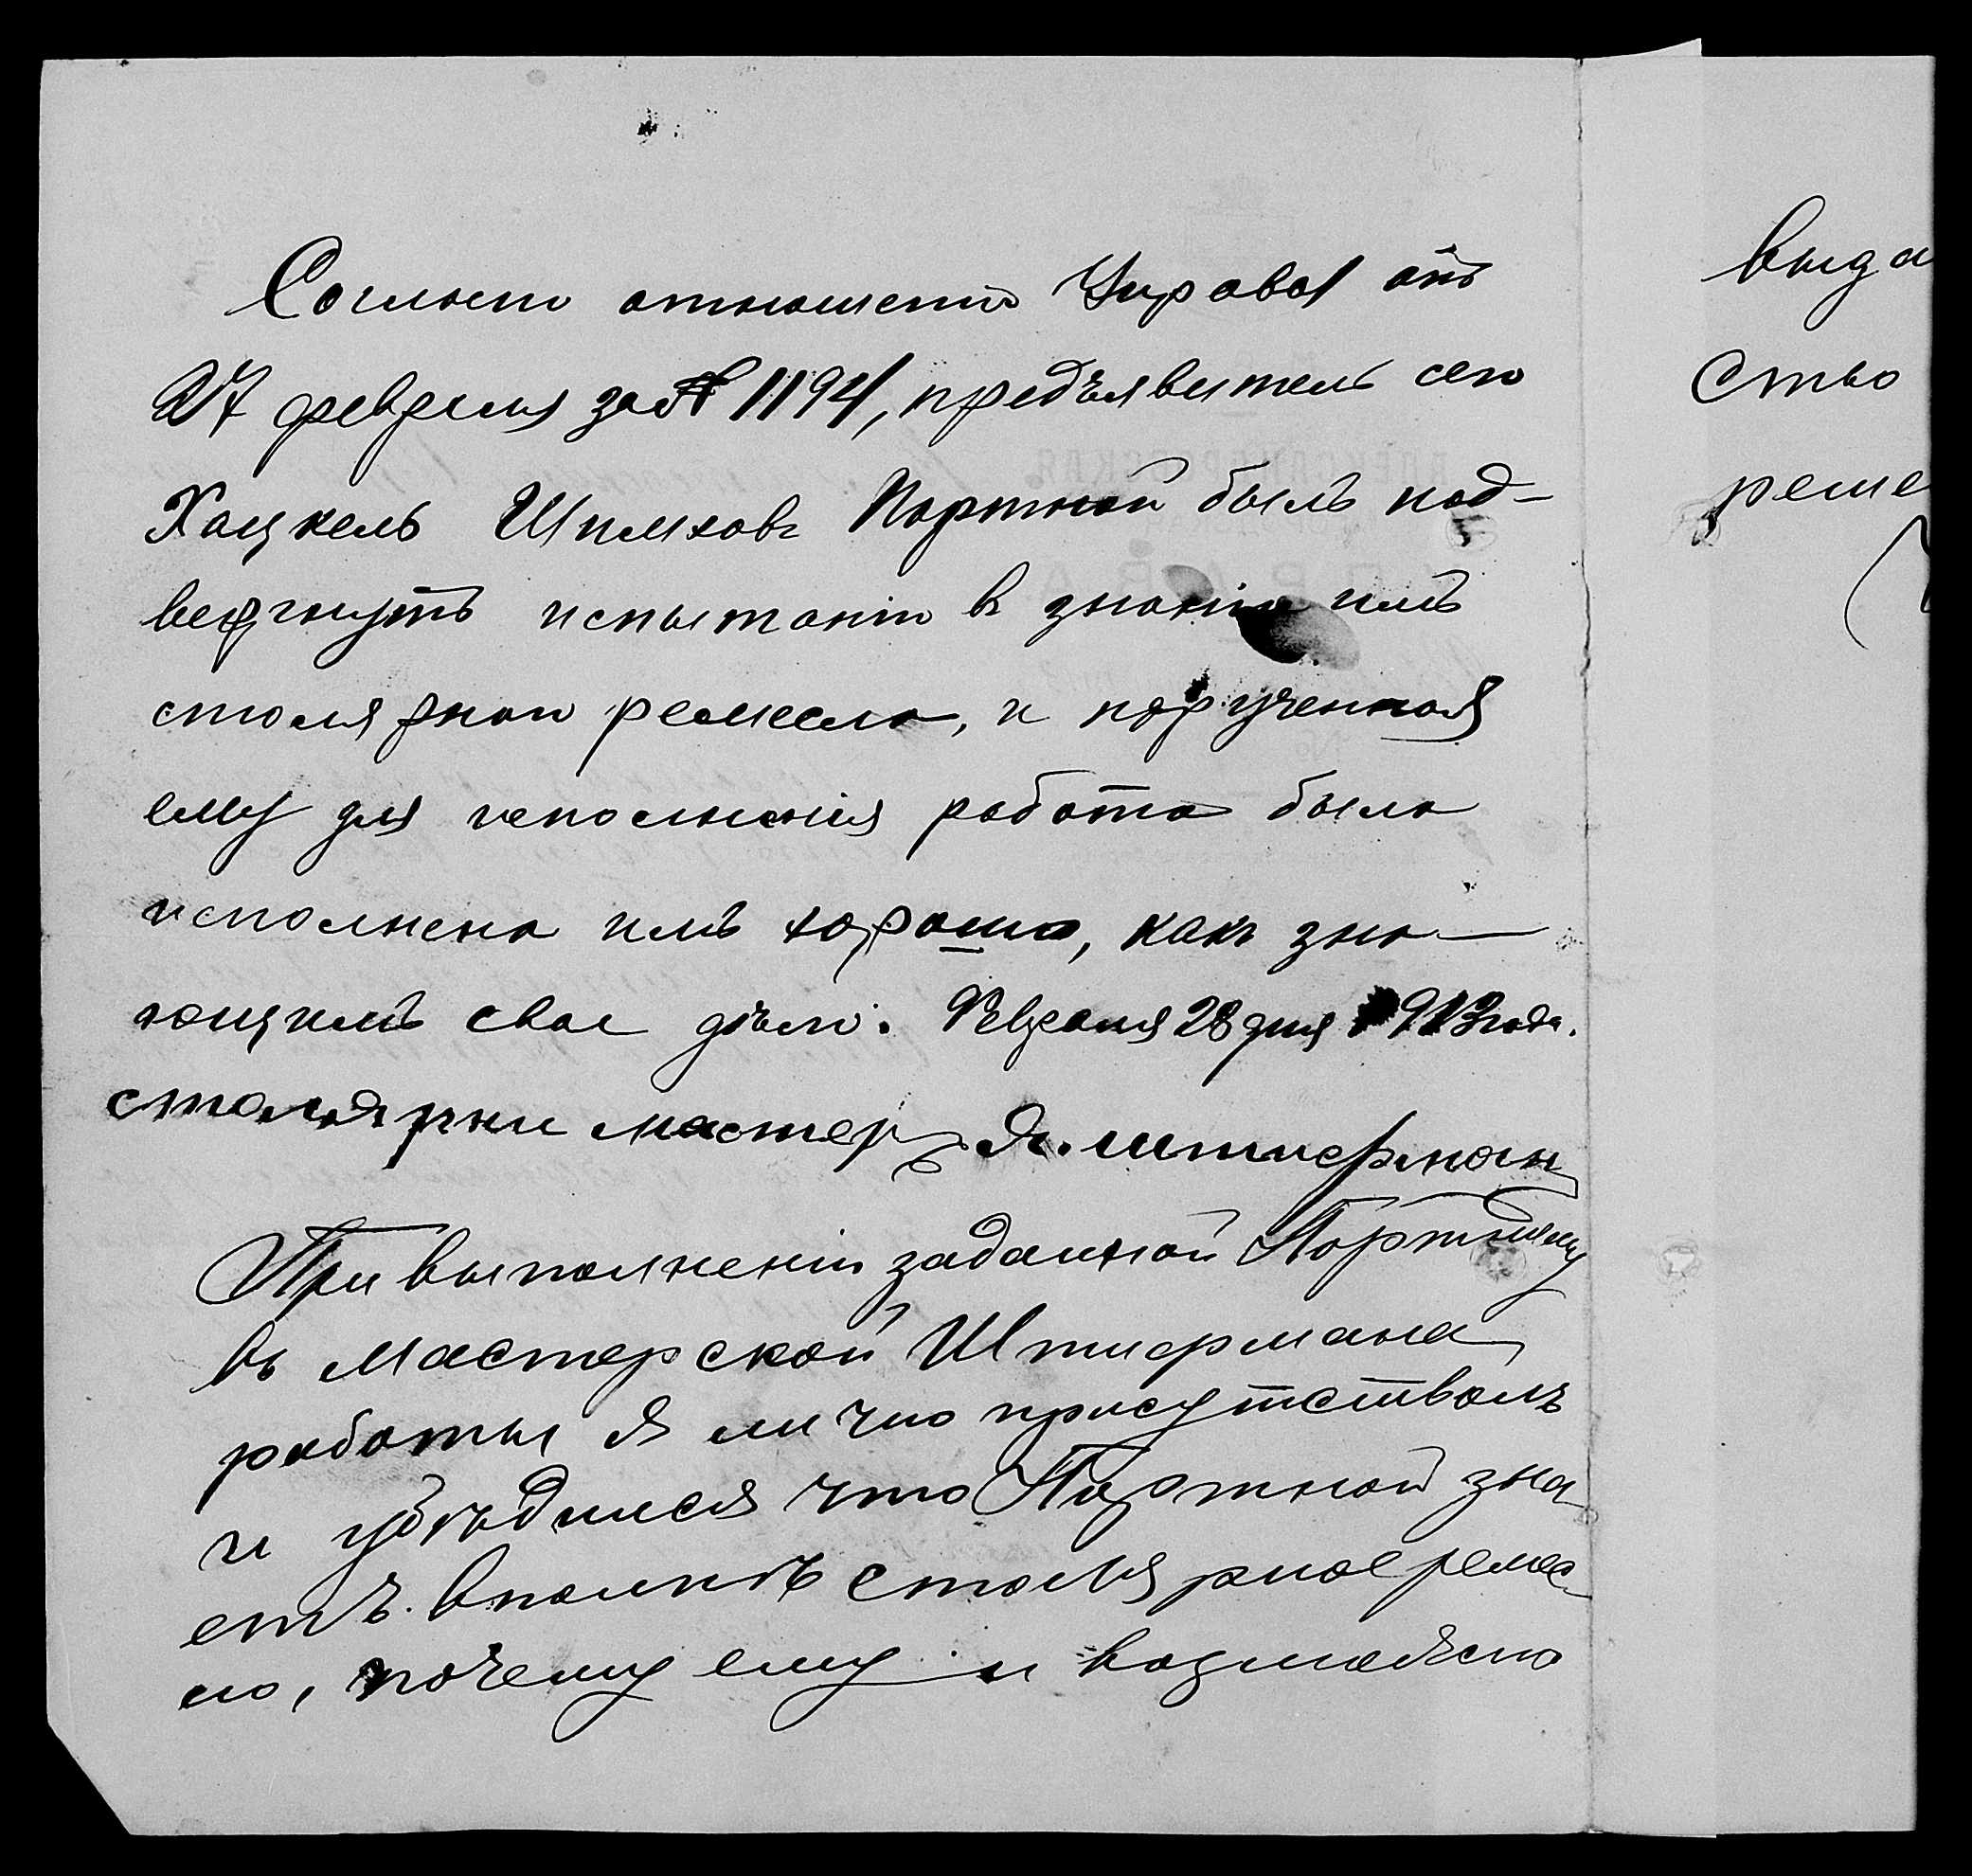 Согласно отношенію Управы отъ
27 февраля за № 1194, предъявитель сего
Хацкель Шмиловъ Портной былъ под-
вергнутъ испытанію въ знаніи имъ
столярнаго ремесла, и порученная
ему для исполненія работа была
исполнена имъ хорошо, какъ зна-
ющимъ свое дѣло. Февраля 28 дня 1913 года.
столярни мастеръ Я. Штиерман
При выполненіи заданной Портному
въ мастерской Штиермана
работы я лично присутствовалъ
и убѣдился что Портной зна-
етъ вполнѣ столярное ремес-
ло, почему ему и возможно
выда
ство
реме